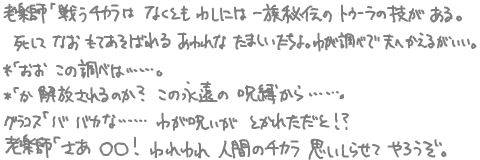 老楽師「戦うチカラは なくとも わしには 一族秘伝の トゥーラの技が ある。
死して なお もてあそばれる あわれな たましいたちよ。わが調べで 天へかえるがいい。
*「おお この調べは……。
*「か 解放されるのか? この永遠の 呪縛から……。
グラコス「バ バカな…… わが呪いが とかれただと!?
老楽師「さあ ○○! われわれ 人間のチカラ 思いしらせて やろうぞ。